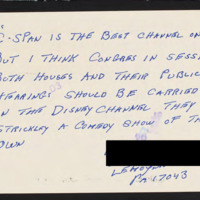 C-SPAN IS THE BEST CHANNEL ON
BUT I THINK CONGRES IN SESSI
BOTH HOUSES AND THEIR PUBLIC
HEARINGS SHOULD BE CARRIED
ON THE DISNEY CHANNEL THEY
STRICKLEY A COMEDY SHOW OF TH
OWN
LEMOYN
PA 17043